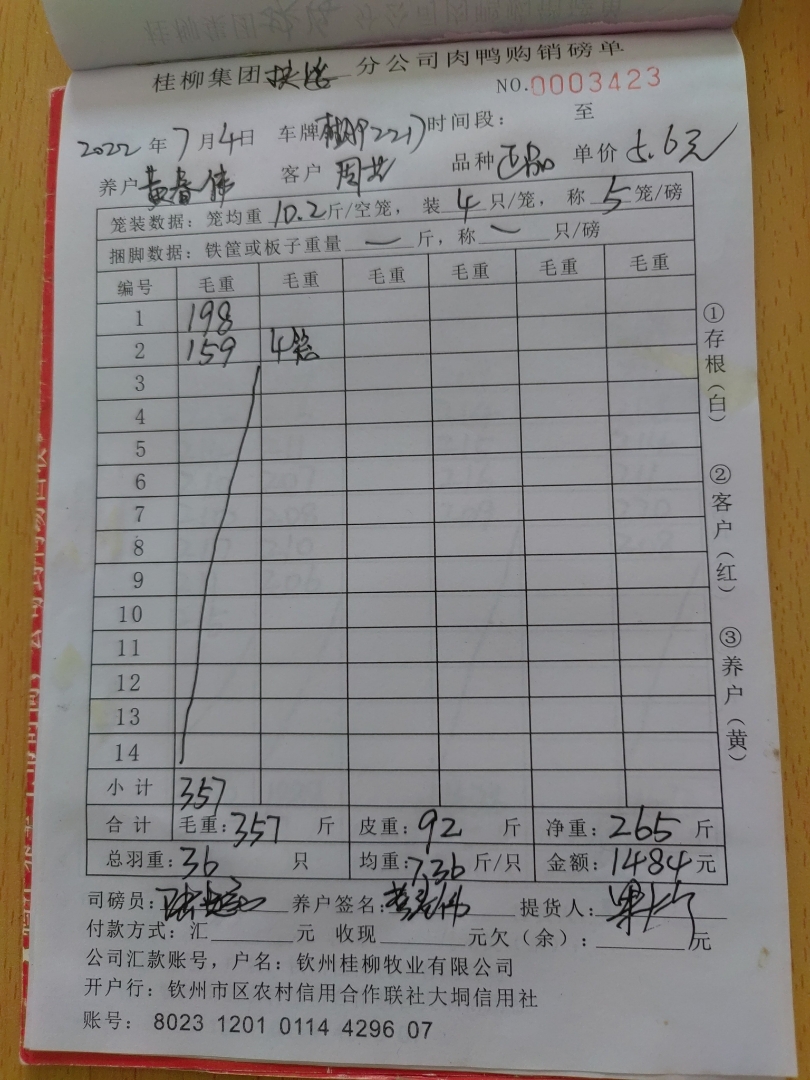 桂柳集团 分公司肉鸭购销磅单
NO.0003423
2022年7月4日 车牌 2217 时间段： 至
养户 黄春伟 客户 周芸 品种 正品 单价 5.6元
笼装数据：笼均重 10.2 斤/空笼，装 4 只/笼，称 5 笼/磅
捆脚数据：铁筐或板子重量 一 斤，称 一 只/磅
编号 毛重 毛重 毛重 毛重 毛重 毛重
1 198
2 159 4笼
3
4
5
6
7
8
9
10
11
12
13
14
小计 357
合计 毛重：357 斤 皮重：92 斤 净重：265 斤
总羽重：36 只 均重：7.36 斤/只 金额：1484 元
司磅员： 养户签名：黄春伟 提货人：
付款方式：汇 元 收现 元欠（余）： 元
公司汇款账号，户名：钦州桂柳牧业有限公司
开户行：钦州市区农村信用合作联社大垌信用社
账号： 8023 1201 0114 4296 07
①存根（白）
②客户（红）
③养户（黄）